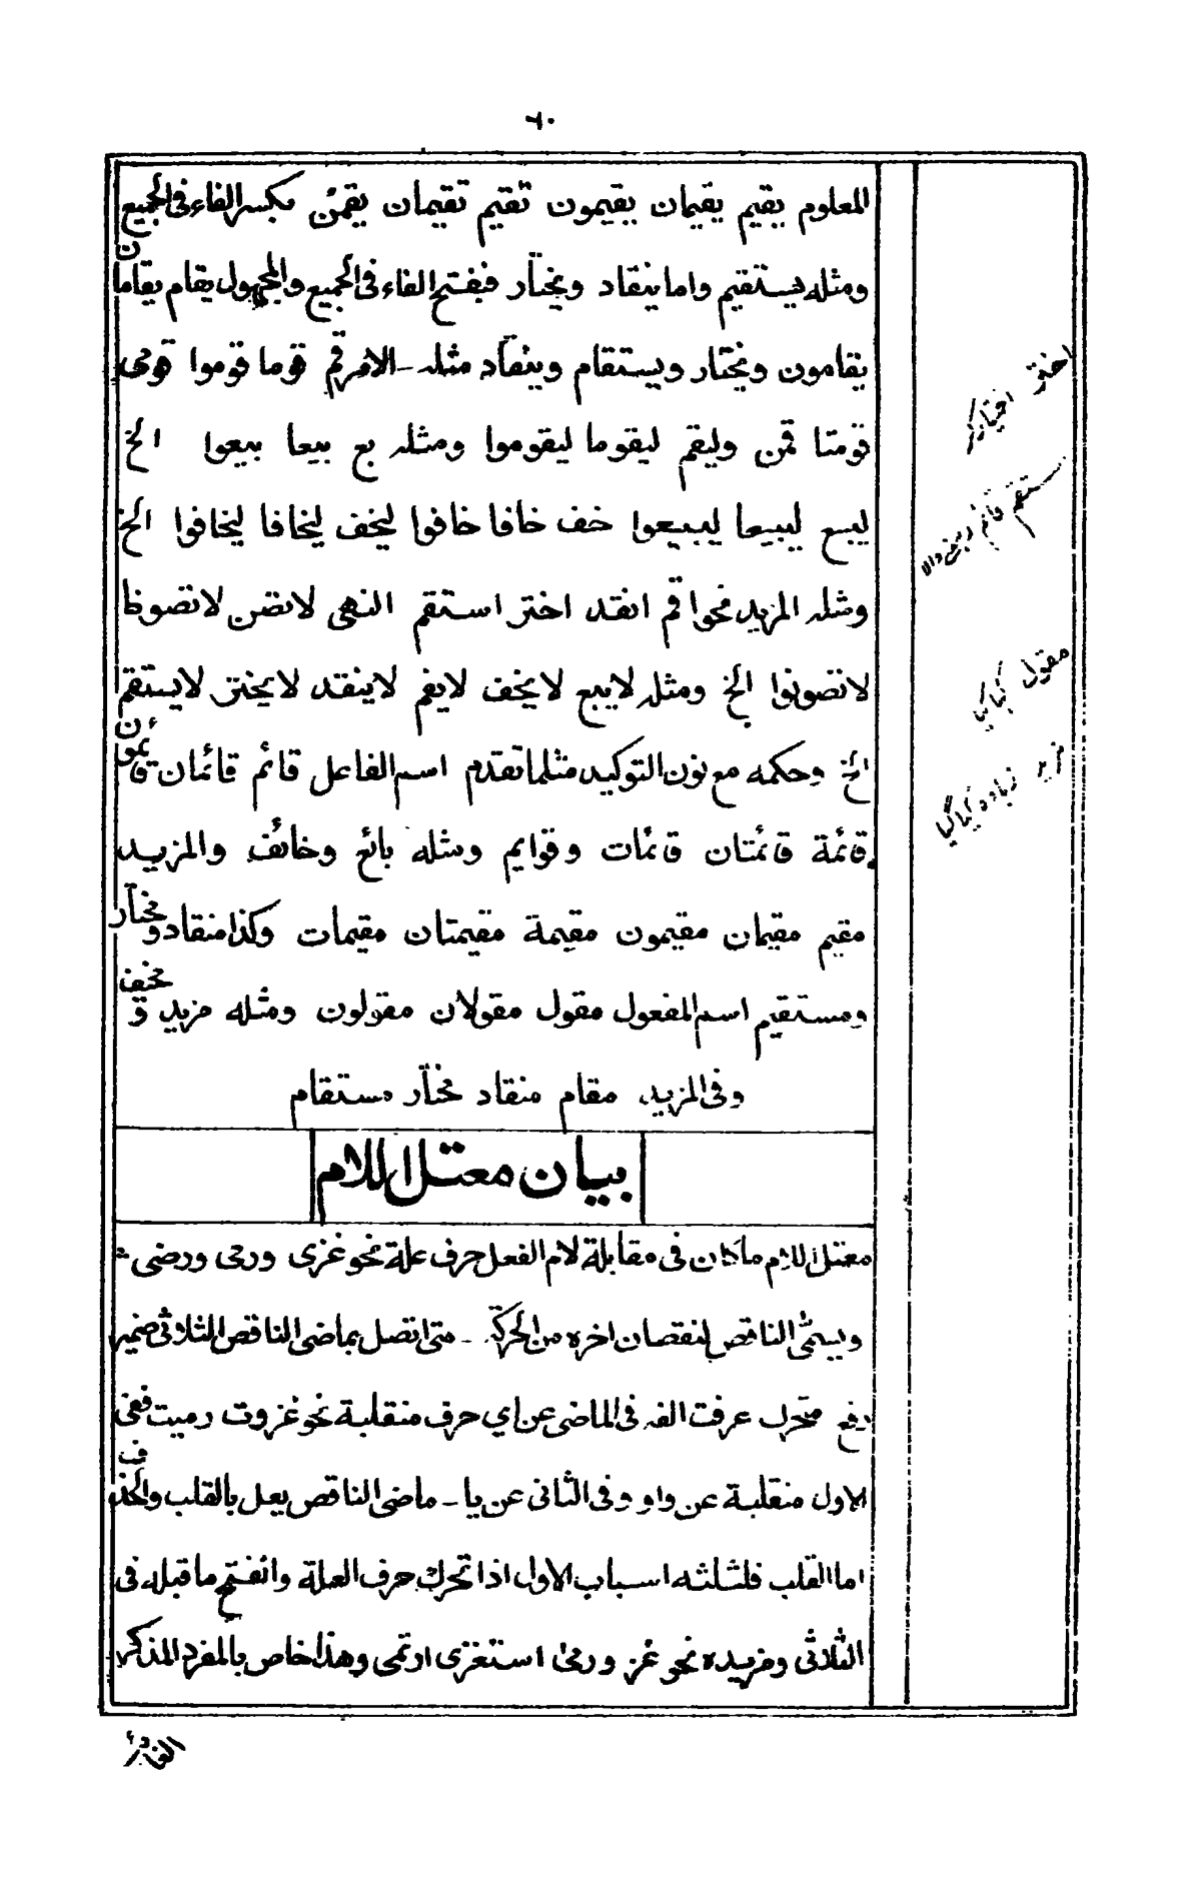 ٦٠
المعلوم يقيم يقيمان يقيمون تقيم تقيمان يقمن بكسر الفاء فى الجميع
ومثله يستقيم واما ينقاد ويختار فبفتح الفاء فى الجميع والمجهول يقام يقامان
يقامون ويختار ويستقام وينقاد مثله ـ الامر قم قوما قوموا قومى
قومتا قمن وليقم ليقوما ليقوموا ومثله بع بيعا بيعوا الخ
ليبع ليبيعا ليبيعوا خف خافا خافوا ليخف ليخافا ليخافوا الخ
ومثله المزيد نحو اقم انقد اختر استقم النهى لاتصن لاتصونا
لاتصونوا الخ ومثله لايبع لايخف لايقم لاينقد لايختر لايستقم
الخ وحكمه مع نون التوكيد مثلما تقدم اسم الفاعل قائم قائمان قائمون
قائمة قائمتان قائمات وقوايم ومثله بائع وخائف والمزيد
مقيم مقيمان مقيمون مقيمة مقيمتان مقيمات وكذا منقاد ومختار
ومستقيم اسم المفعول مقول مقولان مقولون ومثله مزيد و مخف
وفى المزيد مقام منقاد مختار مستقام
بيان معتل اللام
معتل اللام ماكان فى مقابلة لام الفعل حرف علة نحو غزى ورمى ورضى
ويسمى الناقص لنقصان اخره من الحركة ـ متى اتصل بماضى الناقص الثلاثى ضمير
رفع متحرك عرفت الفه فى الماضى عن اي حرف منقلبة نحو غزوت رميت ففى
الاول منقلبة عن واو وفى الثانى عن يا ـ ماضى الناقص يعل بالقلب والحذف
اما القلب فلثلثه اسباب الاول اذا تحرك حرف العلة وانفتح ماقبله فى
الثلاثى ومزيده نحو غز ورمى استغزى ارتمى وهذا خاص بالمفرد المذكر
اختر اختيار کر
مستقیم قائم رہنے والا
مقول کہا گیا
مزید زیادہ کیا گیا